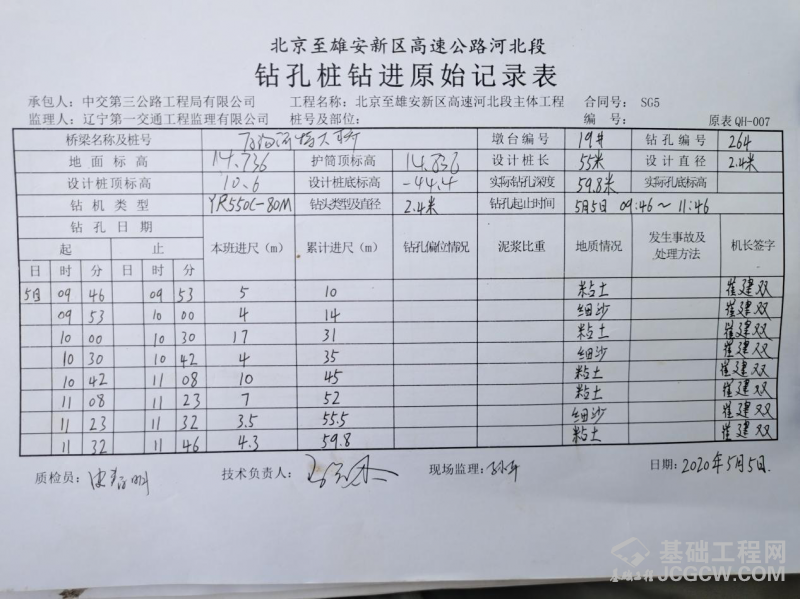 北京至雄安新区高速公路河北段
钻孔桩钻进原始记录表
承包人：中交第三公路工程局有限公司 工程名称：北京至雄安新区高速河北段主体工程 合同号： SG5
监理人：辽宁第一交通工程监理有限公司 桩号及部位： 编 号： 原表QH-007
桥梁名称及桩号 墩台编号 19# 钻孔编号 264
地面标高 14.736 护筒顶标高 14.836 设计桩长 55米 设计直径 2.4米
设计桩顶标高 10.6 设计桩底标高 -44.4 实际钻孔深度 59.8米 实际孔底标高
钻机类型 YR550C-80M 钻头类型及直径 2.4米 钻孔起止时间 5月5日 09:46～11:46
钻孔日期 本班进尺（m） 累计进尺（m） 钻孔偏位情况 泥浆比重 地质情况 发生事故及处理方法 机长签字
起 止
日 时 分 日 时 分
5日 09 46 09 53 5 10 粘土 崔建双
09 53 10 00 4 14 细沙 崔建双
10 00 10 30 17 31 粘土 崔建双
10 30 10 42 4 35 细沙 崔建双
10 42 11 08 10 45 粘土 崔建双
11 08 11 23 7 52 粘土 崔建双
11 23 11 32 3.5 55.5 细沙 崔建双
11 32 11 46 4.3 59.8 粘土 崔建双
质检员： 技术负责人： 现场监理： 日期：2020年5月5日.
基础工程网
JCGCW.COM